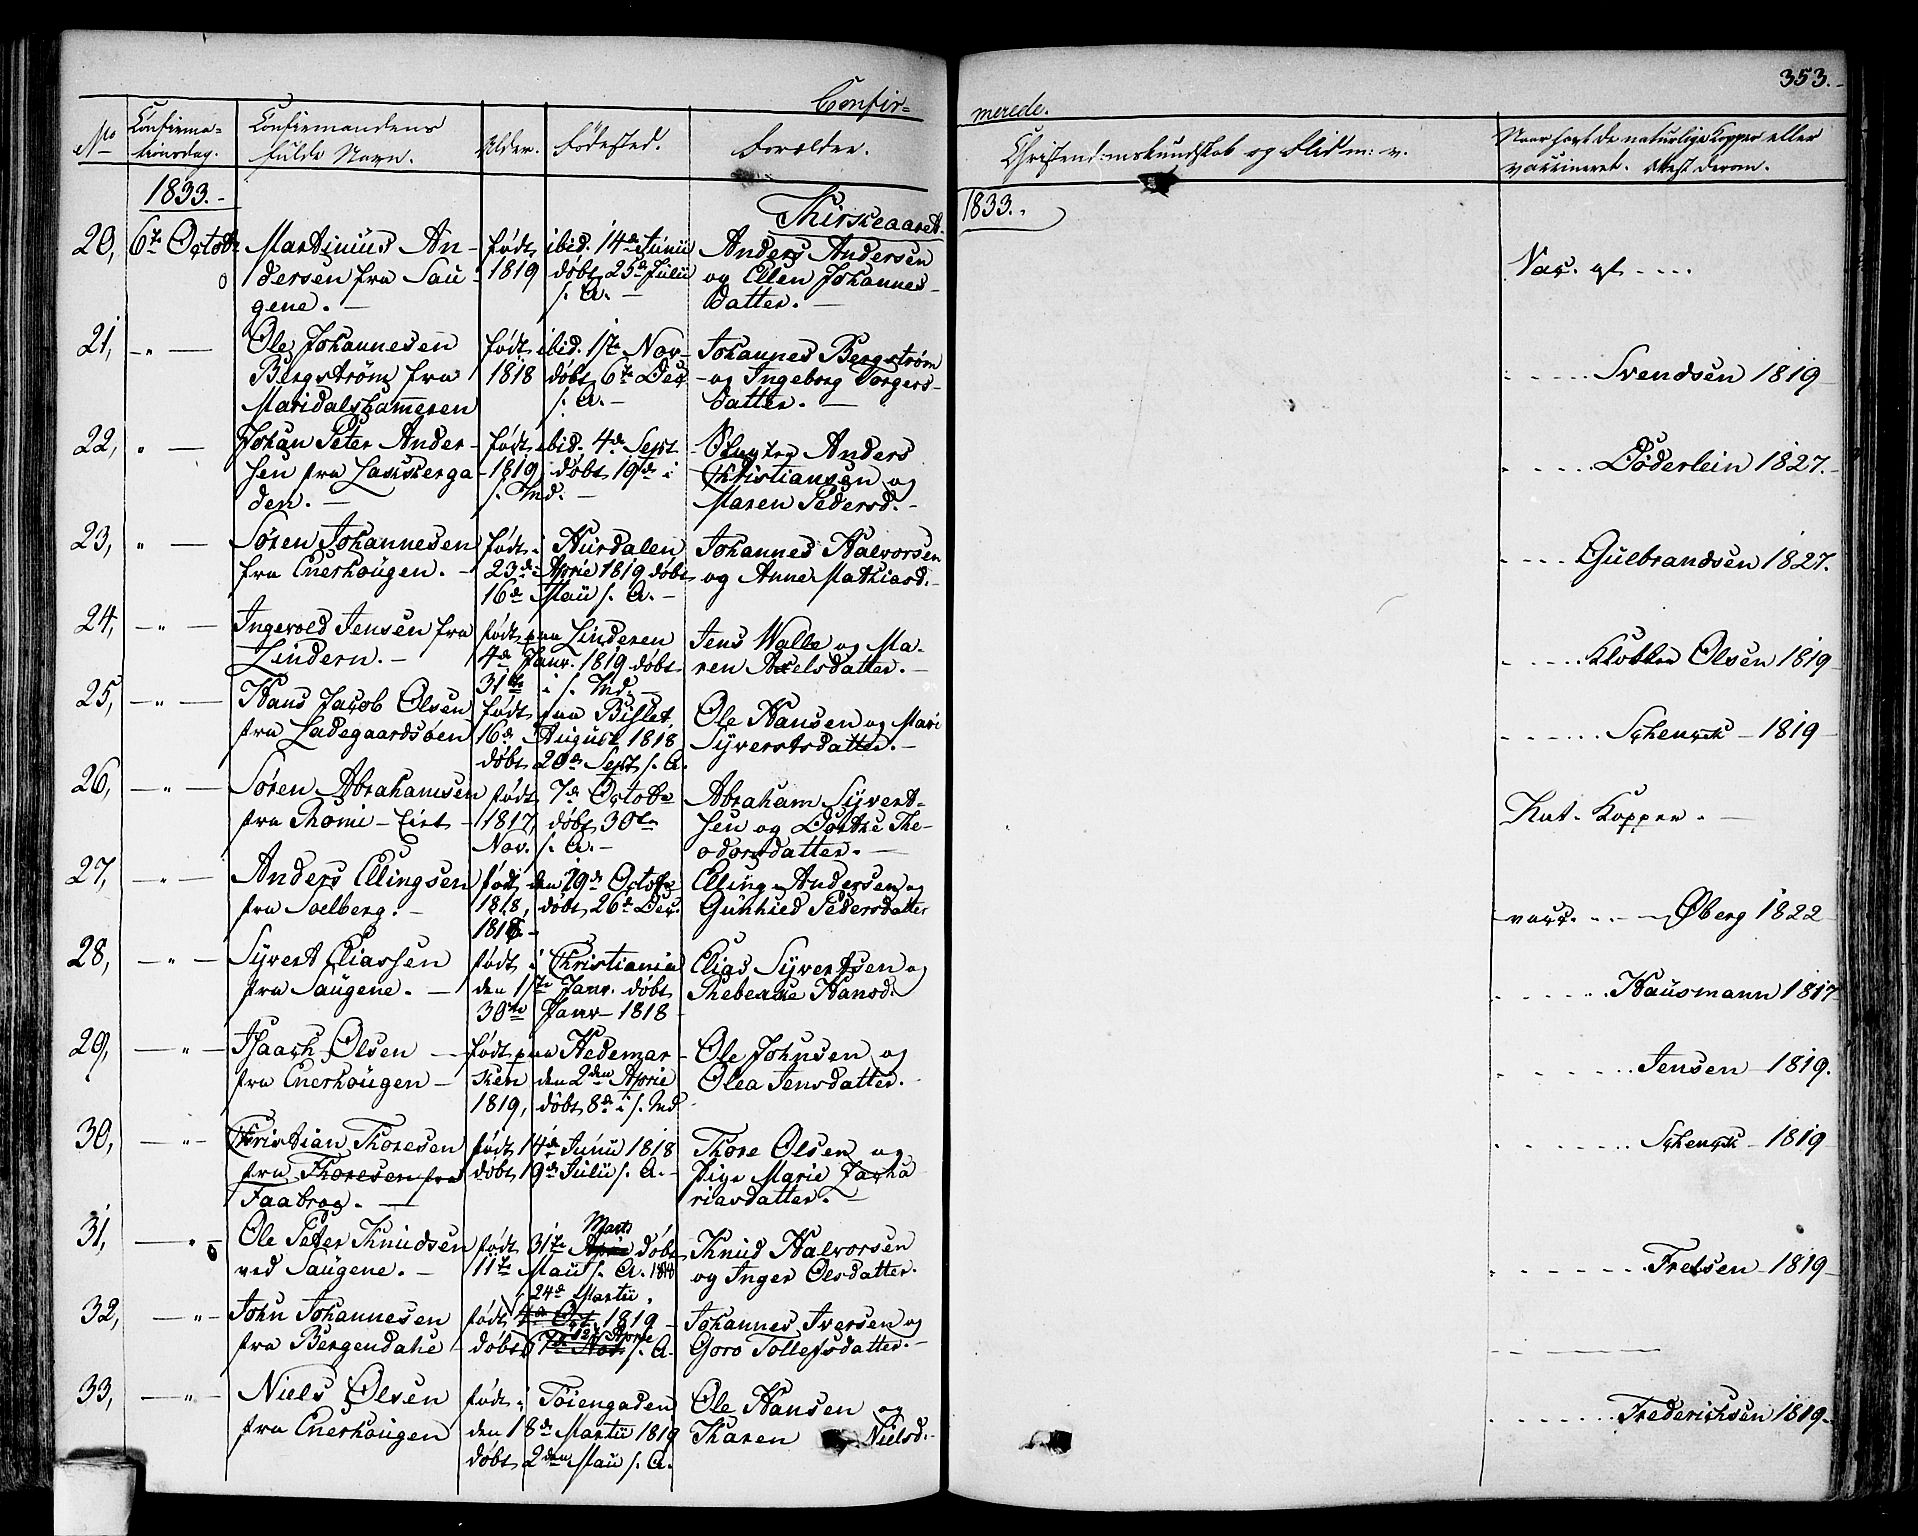 353.
Confir=
merede.
No
Confirma=
tionsdag.
Confirmandens
fulde Navn.
Alder.
Fødested.
Forældre.
Christendomskundskab og Flid m: v.
Naar havt de naturlige Kopper eller
vaccineret. Attest derom.
1833.
1833.
20, 6te Octob
Martinius An-
dersen fra Sau-
gene. -
født ibid. 14de Junii
1819 døbt 25de Julii
s. A. -
Anders Andersen
og Ellen Johannes-
datter. -
Vac. af ....
21, -"-
Ole Johannesen
Bergstrøm fra
Maridalshammeren
født ibid. 1ste Nov-
1818 døbt 6te Dec
s. A. -
Johannes Bergstrøm
- og Ingeborg Torgers-
datter. -
..... Svendsen 1819
22, " -
Johan Peter Ander-
sen fra Lakkerga-
den. -
født ibid. 4de Sept
1819 døbt 19de i
s. Md. -
Anders
Christiansen og
Maren Pedersd. -
..... Döderlein 1827.
23, " -
Søren Johannesen
fra Enerhougen. -
født i Hurdalen
23de April 1819 døbt
16de Maii s. A. -
Johannes Halvorsen
og Anne Mathiasd. -
.... Gulbrandsen 1827.
24, -"-
Ingevold Jensen fra
Lindern. -
født paa Linderen
4de Janr. 1819 døbt
31te i s. Md. -
Jens Walle og Ma-
ren Axelsdatter. -
..... Klokker Olsen 1819
25, -"-
Hans Jacob Olsen
fra Ladegaardsøen
født paa Bislet,
16de August 1818
døbt 20de Sept s. A.
Ole Hansen og Mari
Syvertsdatter. -
...... Schenck - 1819
26, -"-
Søren Abrahamsen
fra
født 7de Octobr
1817, døbt 30te
Nov. s. A. -
Abraham Syvert-
sen og Dorthe The-
odorsdatter. -
Nat. Kopper. -
27, -"-
Anders Ellingsen
fra Solberg. -
født den 29de Octobr
1818, døbt 26de Dec.
1818. -
Elling Andersen og
Gunhild Pedersdatter
vacc. .... Øberg 1822
28, -"-
Syvert Eliassen
fra Saugene. -
født i Christiania
den 1ste Janr. døbt
30te Janr 1818
Elias Syvertsen og
Thebecke Hansd.
...... Hausmann 1817
29, -"-
Isaach Olsen -
fra Enerhougen -
født paa Hedemar-
ken den 2den April
1819, døbt 8de i s. Md
Ole Johnsen og
Olea Jensdatter. -
...... Jensen - 1819.
30, -"-
Christian Thoresen
fra Thoresen fra
Faabroe. -
født 14de Junii 1818
døbt 19de Julii s. A. -
Thore Olsen og
Pige Marie Zacha
riasdatter. -
...... Schenck - 1819
31, -"-
Ole Peter Knudsen
ved Saugene. -
Marts
født 31te April døbt
11te Maii s. A. 1818
Knud Halvorsen
og Inger Olsdatter.
....... Fretsen - 1819
32, -"-
John Johannesen
fra Bergendahl
24de Martii
født 4de Oct. 1819
12te Aprie
døbt 7de Nov s. A
Johannes Iversen og
Goro Tollefsdatter. -
33, -"-
Niels Olsen
fra Enerhougen
født i Töiengaden
den 18de Martii 1819
døbt 2den Maii s. A.
Ole Hansen og
Karen Nielsd. -
...... Frederichsen 1819